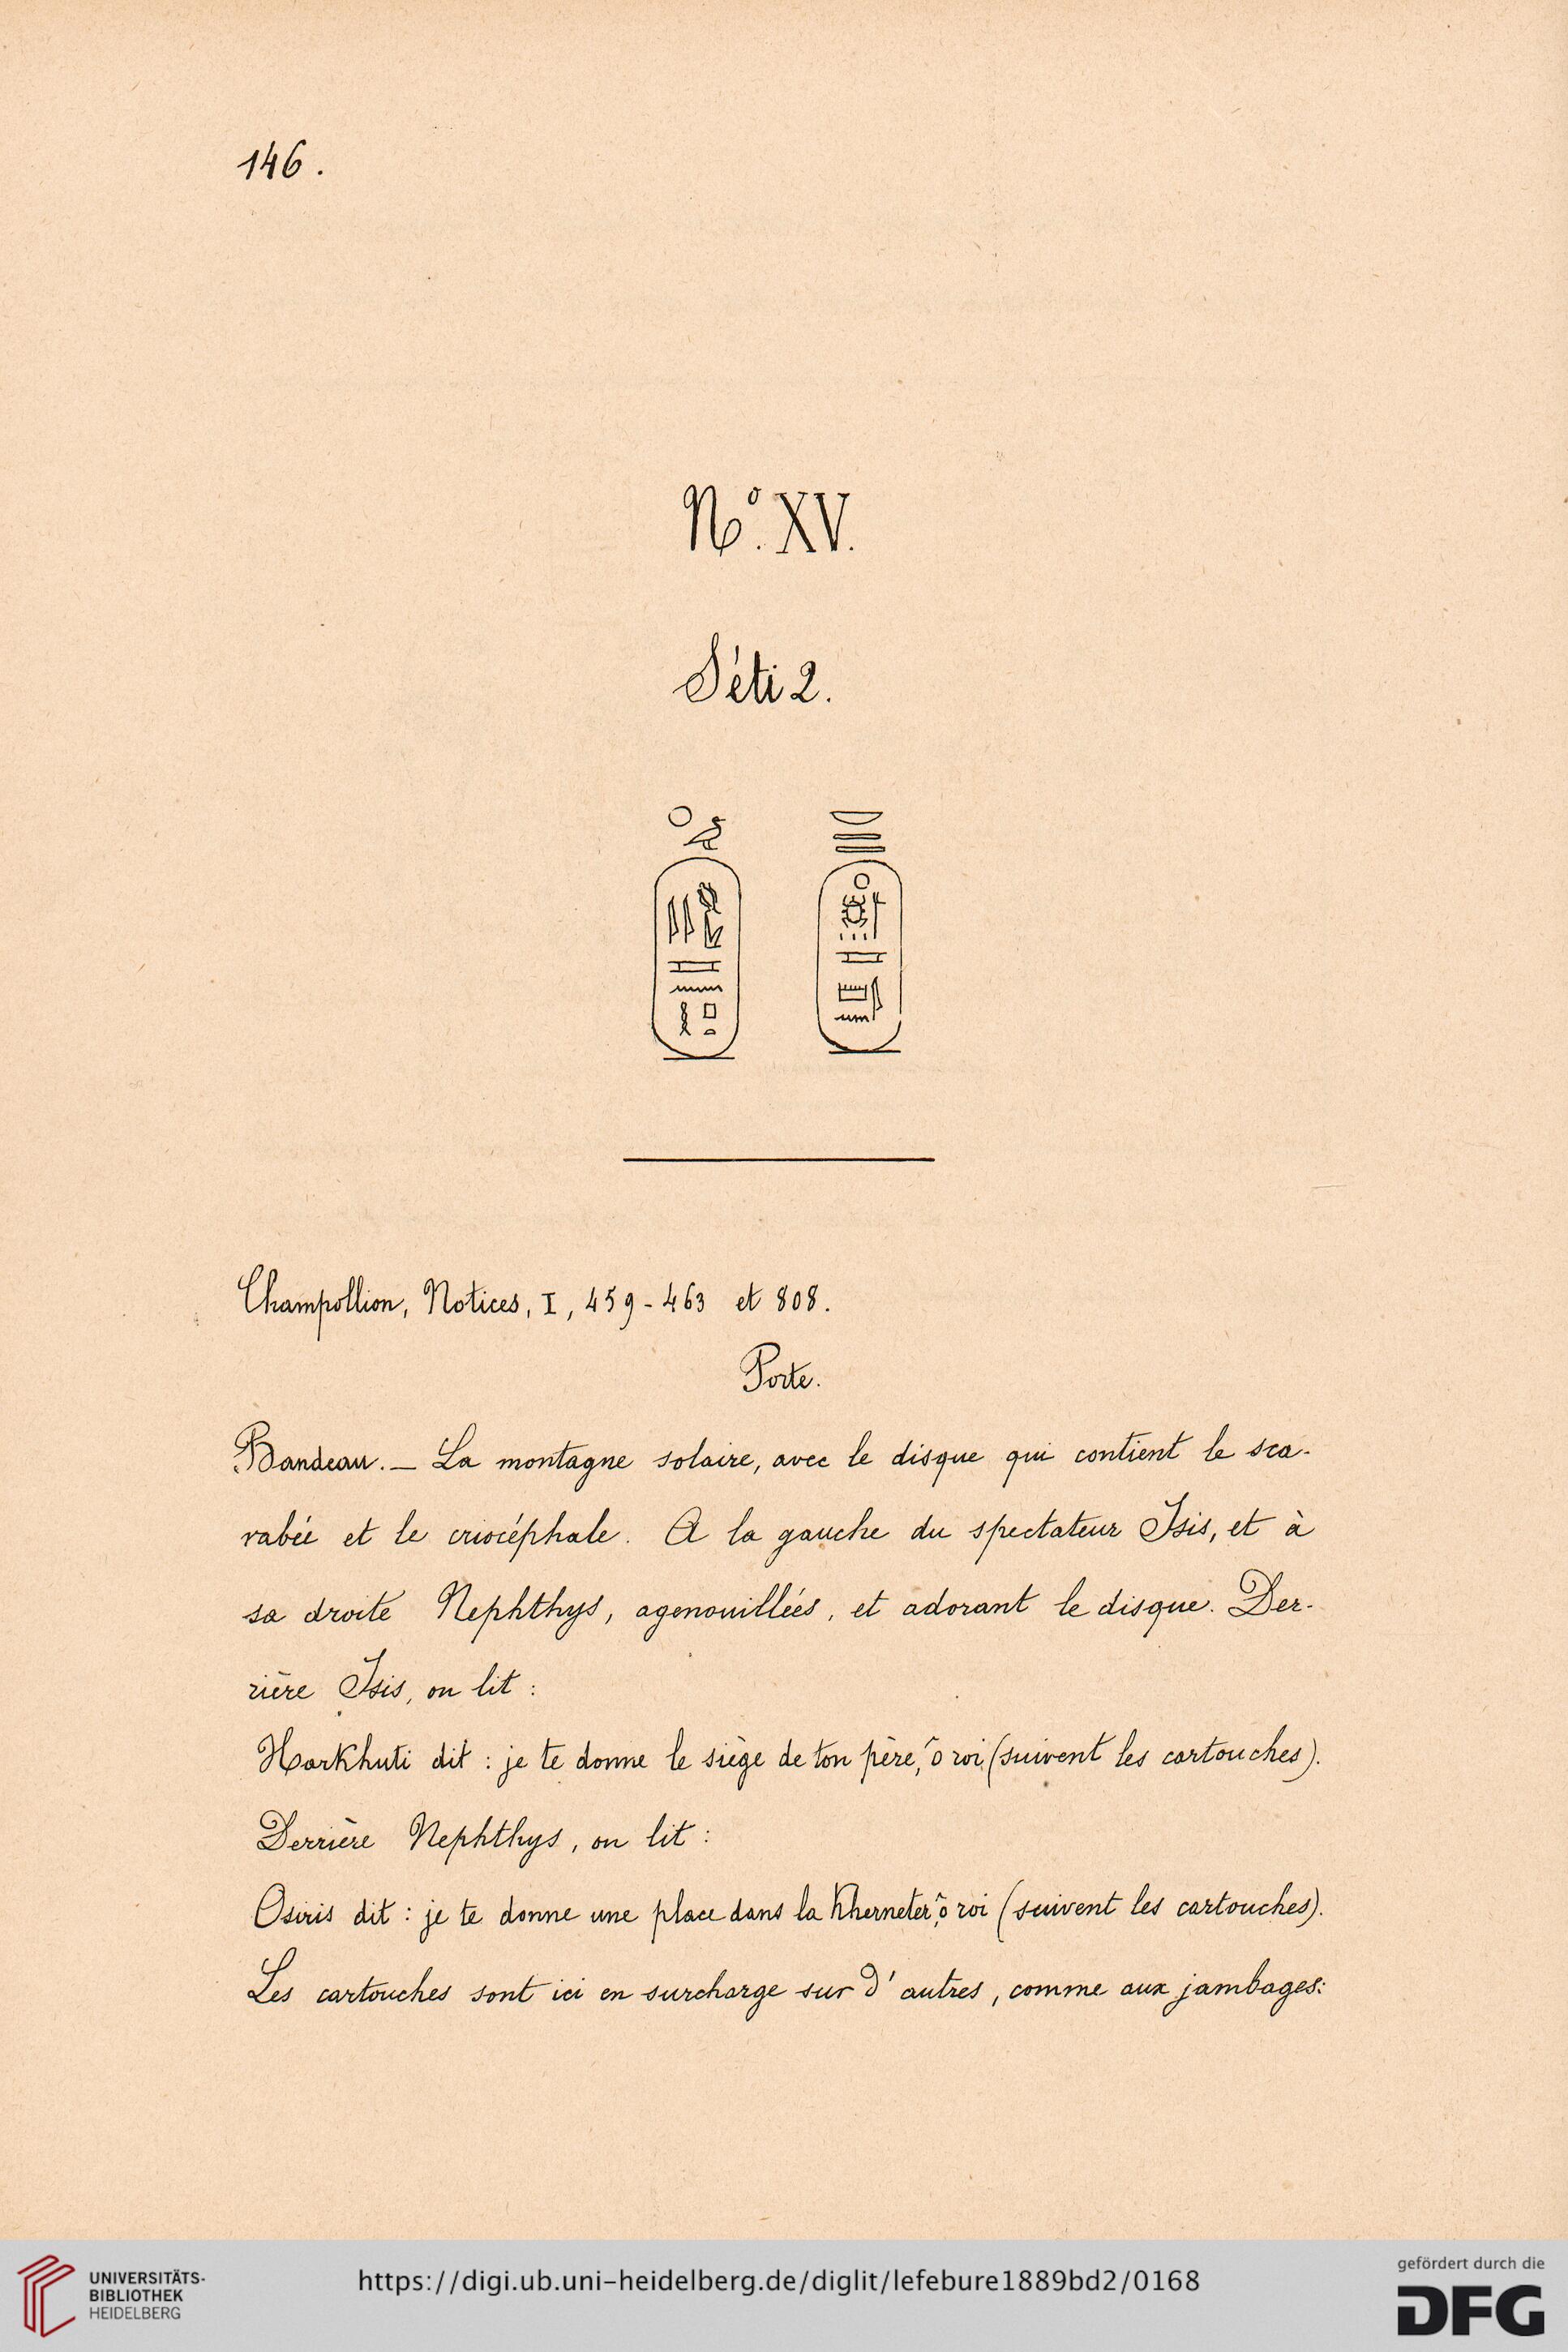 146.
N.º XV.
Séti 2.
Champollion, Notices, I, 459-463 et 808.
Porte.
Bandeau. — La montagne solaire, avec le disque qui contient le sca-
rabée et le criocéphale. A la gauche du spectateur Isis, et à
sa droite Nephthys, agenouillées, et adorant le disque. Der-
rière Isis, on lit :
Harkhuti dit : je te donne le siège de ton père, ô roi (suivent les cartouches).
Derrière Nephthys, on lit :
Osiris dit : je te donne une place dans la Kherneter, ô roi (suivent les cartouches).
Les cartouches sont ici en surcharge sur d'autres, comme aux jambages:
UNIVERSITÄTS-
BIBLIOTHEK
HEIDELBERG
https://digi.ub.uni-heidelberg.de/diglit/lefebure1889bd2/0168
gefördert durch die
DFG